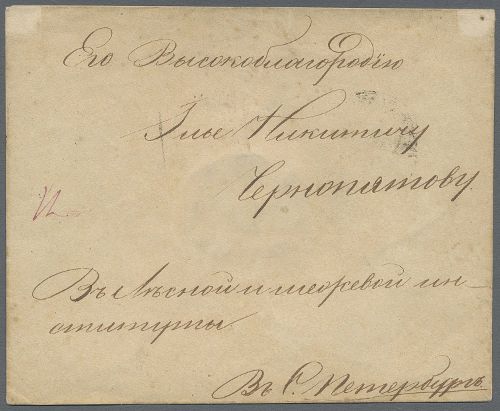 Его Высокоблагородію
Ильѣ Никитичу
Чернопятову.
Въ Лѣсной и межевой ин-
ститутъ.
Въ С. Петербургъ.